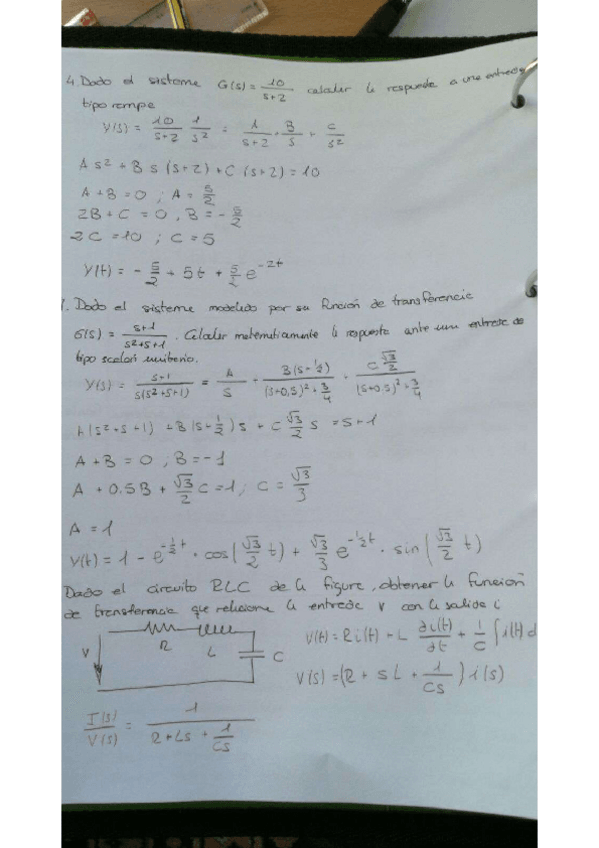 4. Dado el sistema G(s) = 10/(s+2) calcular la respuesta a una entrada
tipo rampa
Y(s) = 10/(s+2) 1/s² = A/(s+2) + B/s + C/s²
A s² + B s (s+2) + C (s+2) = 10
A + B = 0 ; A = 5/2
2B + C = 0 , B = - 5/2
2C = 10 ; C = 5
Y(t) = - 5/2 + 5t + 5/2 e^(-2t)
Dado el sistema modelado por su función de transferencia
G(s) = (s+1)/(s²+s+1) . Calcular matemáticamente la respuesta ante una entrada de
tipo escalón unitario.
Y(s) = (s+1)/(s(s²+s+1)) = A/s + B(s+1/2)/((s+0,5)²+3/4) + C √3/2/((s+0,5)²+3/4)
A(s²+s+1) + B(s+1/2)s + C √3/2 s = s+1
A + B = 0 ; B = -1
A + 0.5B + √3/2 C = 1 ; C = √3/3
A = 1
Y(t) = 1 - e^(-1/2 t) · cos(√3/2 t) + √3/3 e^(-1/2 t) · sin(√3/2 t)
Dado el circuito RLC de la figura, obtener la función
de transferencia que relaciona la entrada v con la salida i
V(t) = Ri(t) + L ∂i(t)/∂t + 1/C ∫i(t) d
V R L C
V(s) = (R + sL + 1/Cs) i(s)
I(s)/V(s) = 1/(R + Ls + 1/Cs)